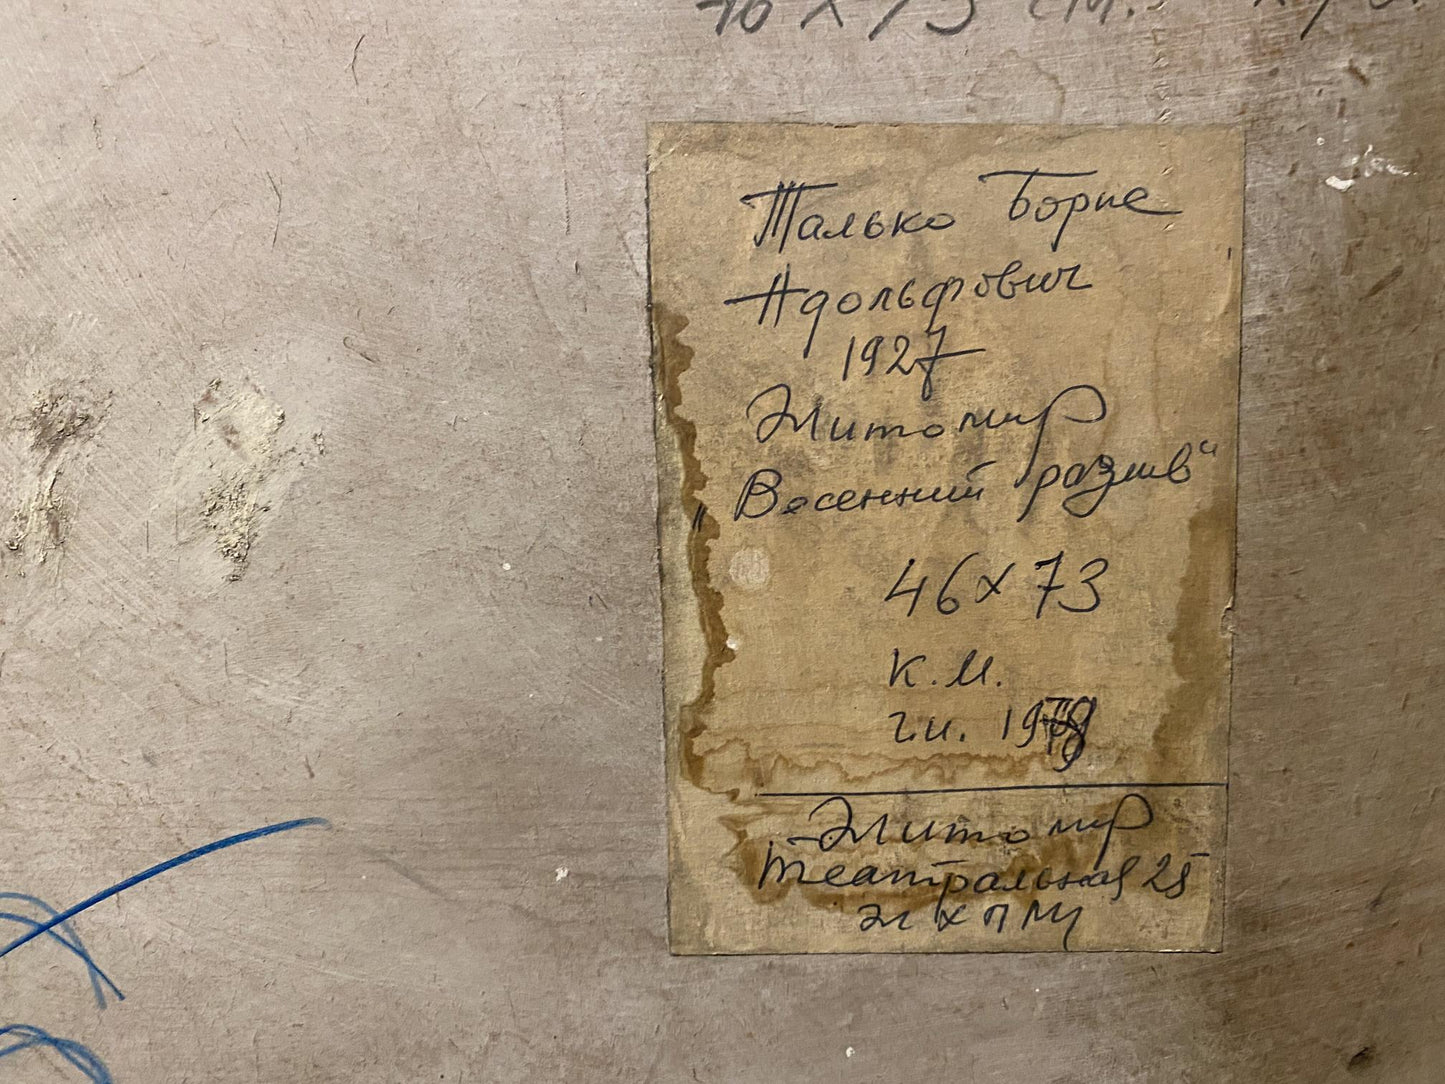 х 73 см.
Талько Борис
Адольфович
1927
Житомир
„Весенний розлив“
46х73
к.м.
г.и. 1979
Житомир
Театральная 25
ЖХПМ